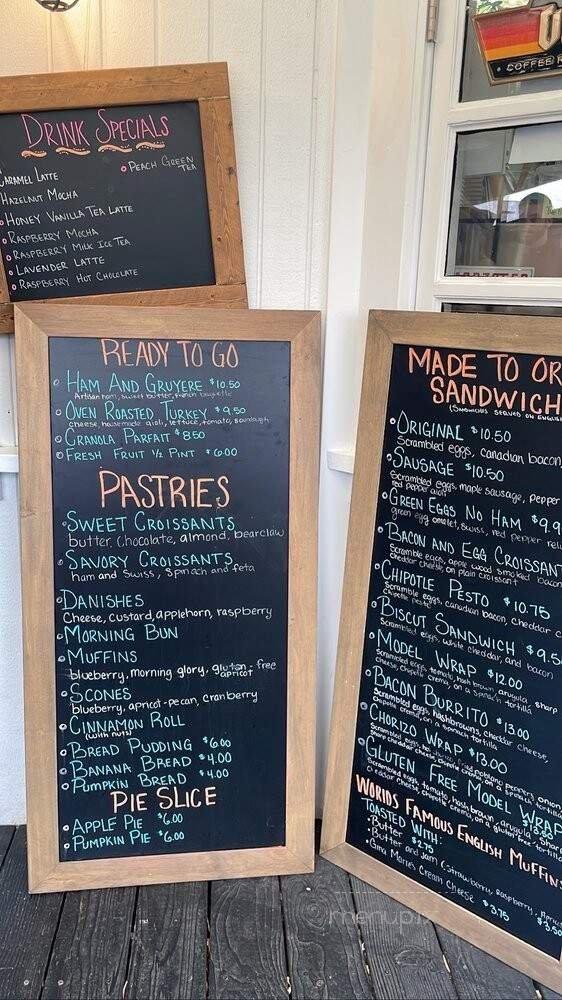 COFFEE R
DRINK SPECIALS
CARAMEL LATTE
PEACH GREEN
TEA
HAZELNUT MOCHA
HONEY VANILLA TEA LATTE
RASPBERRY MOCHA
RASPBERRY MILK ICE TEA
LAVENDER LATTE
RASPBERRY HOT CHOCOLATE
READY TO GO
HAM AND GRUYERE $10.50
Artisan ham, sweet butter, french baguette
OVEN ROASTED TURKEY $9.50
cheese, housemade aioli, lettuce, tomato, sourdough
GRANOLA PARFAIT $8.50
FRESH FRUIT ½ PINT $6.00
PASTRIES
SWEET CROISSANTS
butter, chocolate, almond, bearclaw
SAVORY CROISSANTS
ham and swiss, spinach and feta
DANISHES
Cheese, custard, applehorn, raspberry
MORNING BUN
MUFFINS
blueberry, morning glory, gluten-free
apricot
SCONES
blueberry, apricot-pecan, cranberry
CINNAMON ROLL
(with nuts)
BREAD PUDDING $6.00
BANANA BREAD $4.00
PUMPKIN BREAD $4.00
PIE SLICE
APPLE PIE $6.00
PUMPKIN PIE $6.00
MADE TO OR
SANDWICH
(SANDWICHES SERVED ON ENGLIS
ORIGINAL $10.50
Scrambled eggs, canadian bacon,
SAUSAGE $10.50
Scrambled eggs, maple sausage, pepper
red pepper aioli
GREEN EGGS NO HAM $9.9
green egg omelet, swiss, red pepper reli
BACON AND EGG CROISSAN
Scramble eggs, apple wood smoked bacon
cheddar cheese on plain croissant
CHIPOTLE PESTO $10.75
Scramble eggs, canadian bacon, cheddar c
chipotle pesto
BISCUT SANDWICH $9.5
Scrambled eggs, white cheddar, and bacon
MODEL WRAP $12.00
Scrambled eggs, tomato, hash brown, arugula, sharp
cheese, chipotle crema, on a spinach tortilla
BACON BURRITO $13.00
Scrambled eggs, hashbrowns, cheddar cheese,
chipotle crema, on a spinach tortilla
CHORIZO WRAP $13.00
Scrambled eggs, poblano peppers, onion,
share cheddar cheese, chipotle crema on a spinach tortilla
GLUTEN FREE MODEL WRAP
$13.50
Scrambled eggs, tomato, hash brown, arugula, Shar
cheddar cheese, chipotle crema, on a gluten free tortilla
WORLDS FAMOUS ENGLISH MUFFINS
TOASTED WITH:
Butter $2.75
Butter and Jam (Strawberry, Raspberry, Apric
$3.50
Gina Marie's Cream Cheese $3.75
menupix